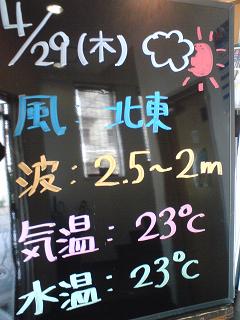 4/29(木)
風 北東
波:2.5~2m
気温:23℃
水温:23℃